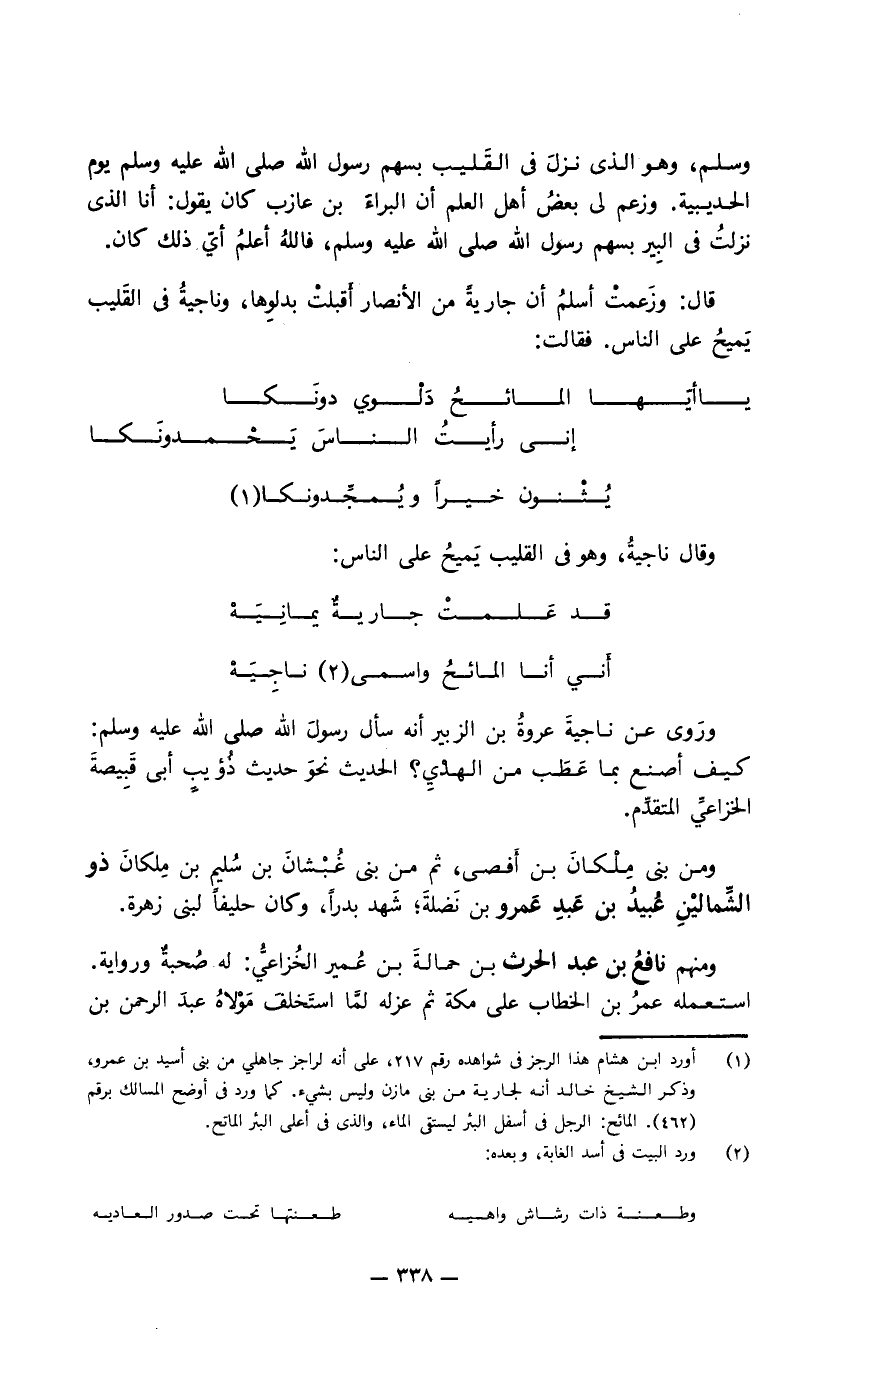 وسلم، وهو الذى نزلَ فى القَليب بسهم رسول الله صلى الله عليه وسلم يوم
الحديبية. وزعم لى بعضُ أهل العلم أن البراءَ بن عازب كان يقول: أنا الذى
نزلتُ فى البِير بسهم رسول الله صلى الله عليه وسلم، فاللهُ أعلمُ أيّ ذلك كان.
قال: وزَعمتْ أسلمُ أن جاريةً من الأنصار أقبلتْ بدلوِها، وناجيةُ فى القَليب
يَميحُ على الناس. فقالت:
ياأيّها المائحُ دَلْوي دونَكا
إنى رأيتُ الناسَ يَحْمدونَكا
يُثْنون خيراً ويُمجِّدونكا(١)
وقال ناجيةُ، وهو فى القليب يَميحُ على الناس:
قد عَلمتْ جاريةٌ يمانِيَهْ
أَني أنا المائحُ واسمى(٢) ناجِيَهْ
ورَوى عن ناجيةَ عروةُ بن الزبير أنه سأل رسولَ الله صلى الله عليه وسلم:
كيف أصنع بما عَطَب من الهدْيِ؟ الحديث نحوَ حديث ذُؤيبٍ أبى قَبِيصةَ
الخزاعيِّ المتقدّم.
ومن بنى مِلْكانَ بن أَفصى، ثم من بنى غُبْشانَ بن سُليم بن مِلكانَ ذو
الشِّمالَيْنِ عُبيدُ بن عَبدِ عَمرو بن نَضلةَ؛ شَهد بدراً، وكان حليفاً لبنى زهرة.
ومنهم نافعُ بن عبد الحرث بن حمالةَ بن عُمير الخُزاعيُّ: له صُحبةٌ ورواية.
استعمله عمرُ بن الخطاب على مكة ثم عزله لمَّا استَخلفَ مَوْلاهُ عبدَ الرحمن بن
(١) أورد ابن هشام هذا الرجز فى شواهده رقم ٢١٧، على أنه لراجز جاهلي من بنى أسيد بن عمرو،
وذكر الشيخ خالد أنه لجارية من بنى مازن وليس بشيء. كما ورد فى أوضح المسالك برقم
(٤٦٢). المائح: الرجل فى أسفل البئر ليستقى الماء، والذى فى أعلى البئر الماتح.
(٢) ورد البيت فى أسد الغابة، وبعده:
وطعنة ذات رشاش واهيه طعنتها تحت صدور العاديه
— ٣٣٨ —